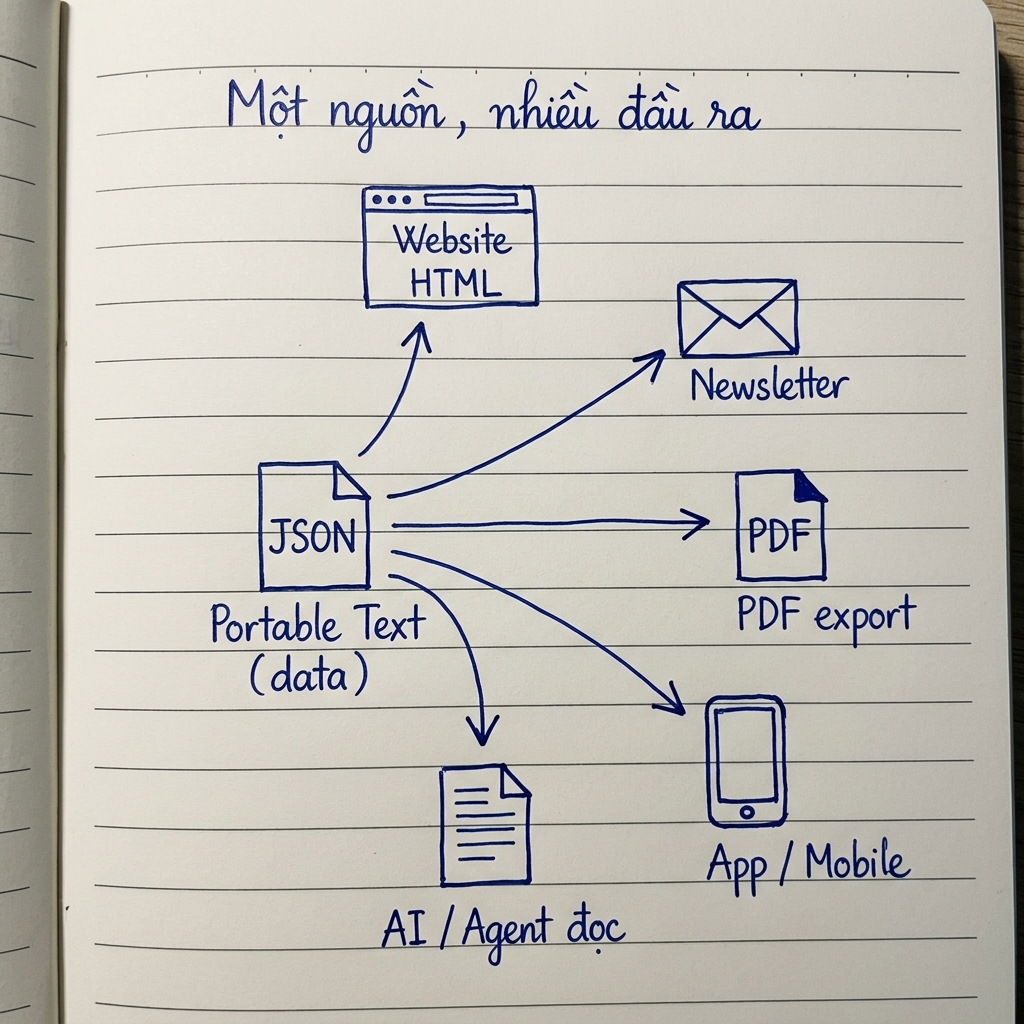 Một nguồn, nhiều đầu ra
Website
HTML
Newsletter
JSON
Portable Text
(data)
PDF
PDF export
App / Mobile
AI / Agent đọc